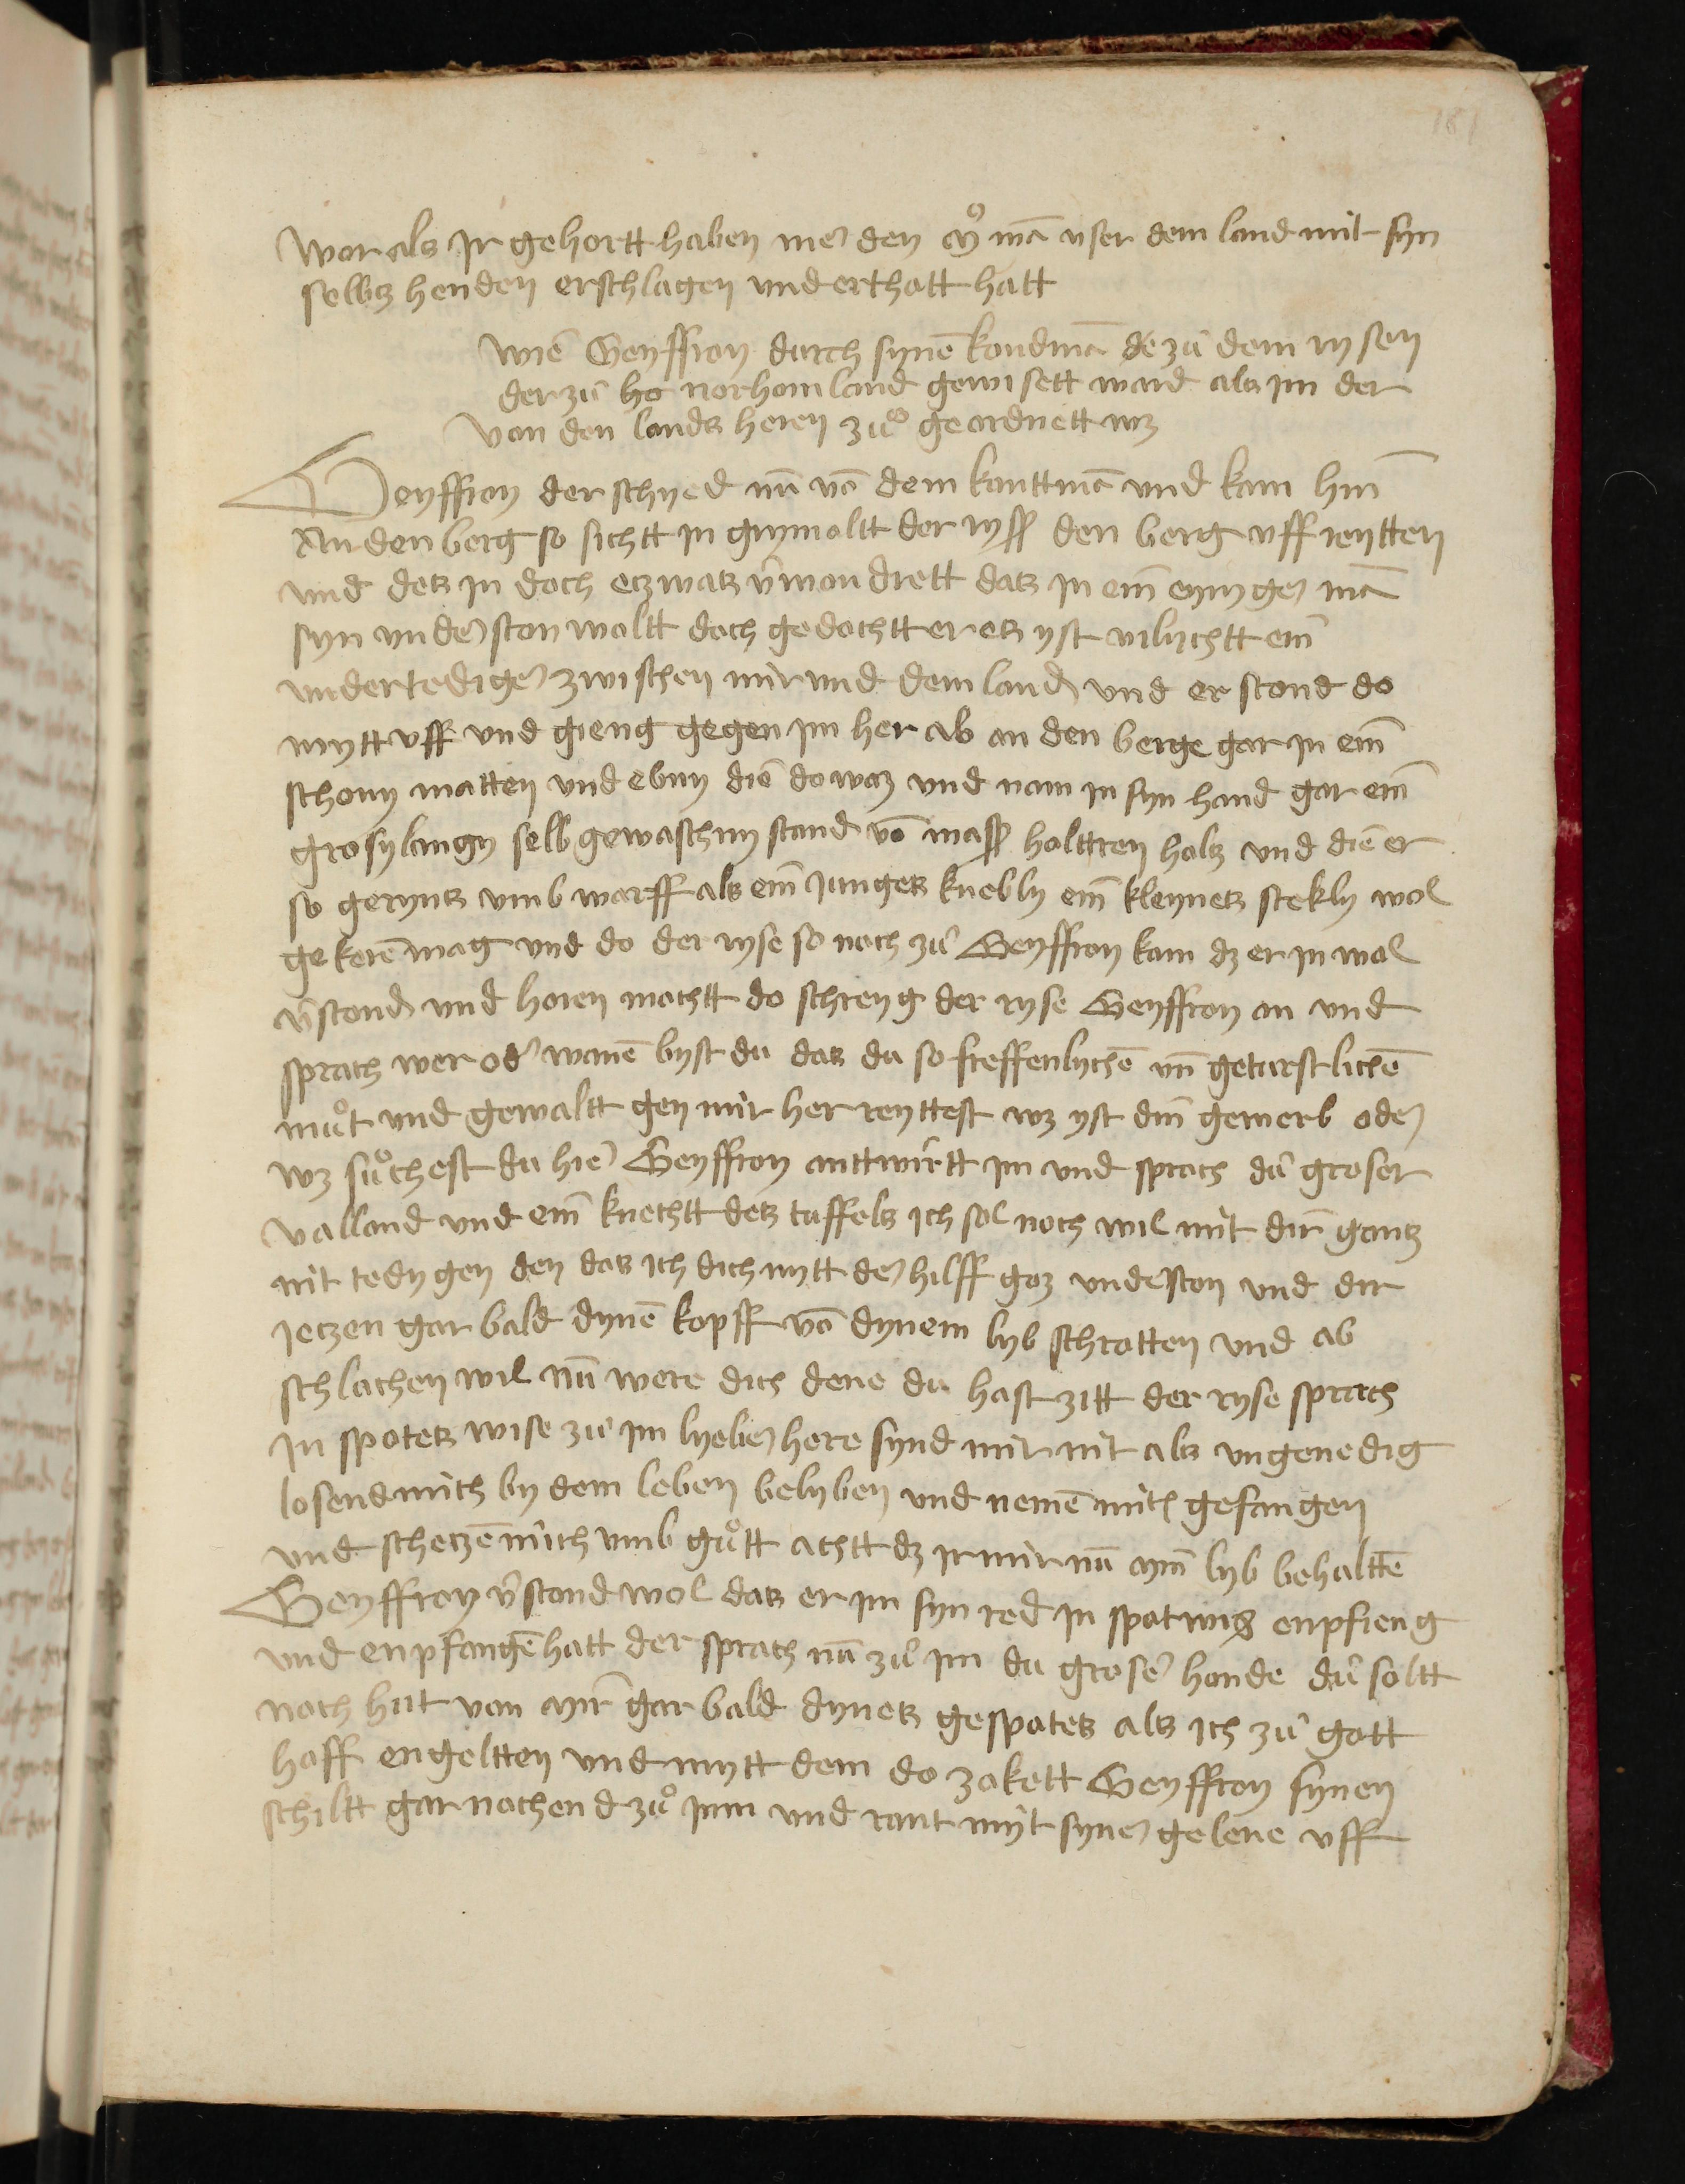 161
wor als Jr gehortt haben me den mͦ ma vser dem land mit syn
selbtz henden erschlagen vnd erthott hatt
wie Geyffroy durch synē kondma de zů dem rysen
der zů ho norhomland gewisett ward als jm der
von den lands heren zů geordnett wz
Geyffroy der schyed nū vō dem kanttma vnd kam hin̄
An den berg so sichtt jn grymoltt der ryß den berg vff reytten
vnd des jn doch etzwas v̄wondrett das jn ein̄ eynyger ma
syn vnderston woltt doch gedochtt er es yst vilychtt ein̄
vndertediger zwischen mir vnd dem land vnd er stond do
mytt vff vnd gieng gegen jm her ab an den berge gar jn ein̄
schony matten vnd ebny die do waz vnd nam jn syn hand gar ein̄
grosy langy selb gewaschny stand vō maß holttren holtz vnd die er
so gerynts vmb warff als ein̄ junges knebly ein̄ kleynes stekly wol
gekerē mag vnd do der ryse so noch zů Geyffroy kam dz er jn wol
v̄stond vnd horen mochtt do schreyg der ryse Geyffroy an vnd
sprach wer oder wanē byst du das du so freffenlychē vn̄ geturstlichē
můt vnd gewaltt gen mir her reyttest wz yst din̄ gewerb oder
wz sůchest du hie Geyffroy anttwirtt jm vnd sprach dů groser
valland vnd ein̄ knechtt des tuffels jch sol noch wil mit dir gantz
nit tedygen den das jch dich mytt der hilff goz vnderston vnd dir
jetzen gar bald dynē kopff vō dynem lyb schrotten vnd ab
schlachen wil nū were dich dene du hast zitt der ryse sprach
jn spotes wise zů jm lyeber here synd mir nit als vngenedig
losend mich by dem leben belyben vnd nemē mich gefangen
vnd schetzē mich vmb gůtt achtt dz jr mir nū myn̄ lyb behalttē
Geyffroy v̄stond wol das er jm syn red jn spot wis enpfieng
vnd enpfangē hatt der sprach nū zů jm du groser honde dů soltt
noch hut von mir gar bald dynes gespotes als jch zů gott
hoff engeltten vnd mytt dem do zokett Geyffroy synen
schiltt gar nochend zů jmm vnd rant myt syner gelene vff